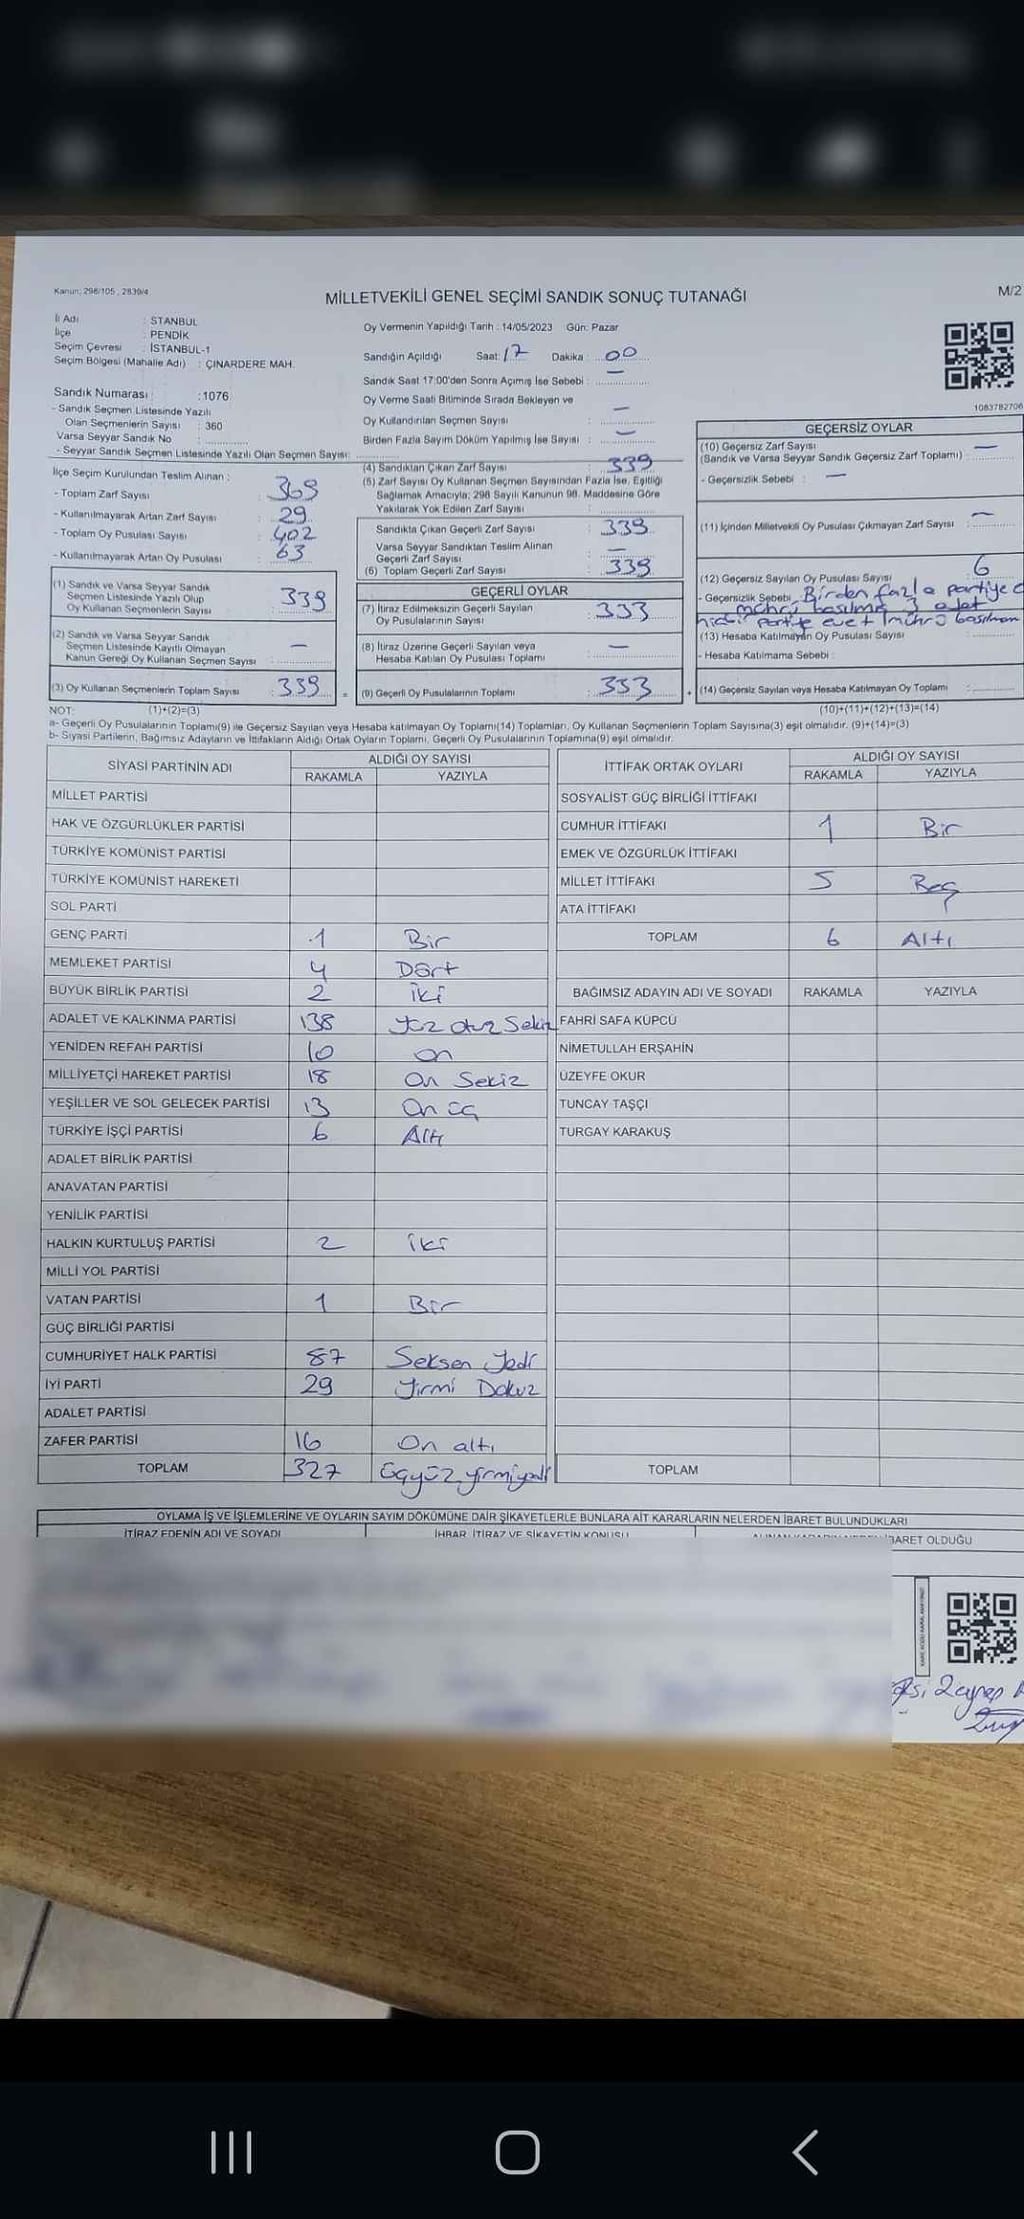 Kanun: 298/105 , 2839/4
MİLLETVEKİLİ GENEL SEÇİMİ SANDIK SONUÇ TUTANAĞI
M/2
İl Adı : STANBUL
İlçe : PENDİK
Seçim Çevresi : İSTANBUL-1
Seçim Bölgesi (Mahalle Adı) : ÇINARDERE MAH.
Sandık Numarası : 1076
- Sandık Seçmen Listesinde Yazılı
Olan Seçmenlerin Sayısı : 360
Varsa Seyyar Sandık No :
- Seyyar Sandık Seçmen Listesinde Yazılı Olan Seçmen Sayısı:
Oy Vermenin Yapıldığı Tarih : 14/05/2023 Gün: Pazar
Sandığın Açıldığı Saat: 17 Dakika : 00
Sandık Saat 17:00'den Sonra Açımış İse Sebebi : —
Oy Verme Saati Bitiminde Sırada Bekleyen ve
Oy Kullandırılan Seçmen Sayısı : —
Birden Fazla Sayım Döküm Yapılmış İse Sayısı : —
1083782706
İlçe Seçim Kurulundan Teslim Alınan :
- Toplam Zarf Sayısı : 368
- Kullanılmayarak Artan Zarf Sayısı : 29
- Toplam Oy Pusulası Sayısı : 402
- Kullanılmayarak Artan Oy Pusulası : 63
(1) Sandık ve Varsa Seyyar Sandık
Seçmen Listesinde Yazılı Olup
Oy Kullanan Seçmenlerin Sayısı : 339
(2) Sandık ve Varsa Seyyar Sandık
Seçmen Listesinde Kayıtlı Olmayan
Kanun Gereği Oy Kullanan Seçmen Sayısı : —
(3) Oy Kullanan Seçmenlerin Toplam Sayısı : 339
(4) Sandıktan Çıkan Zarf Sayısı : 339
(5) Zarf Sayısı Oy Kullanan Seçmen Sayısından Fazla İse, Eşitliği
Sağlamak Amacıyla; 298 Sayılı Kanunun 98. Maddesine Göre
Yakılarak Yok Edilen Zarf Sayısı :
Sandıkta Çıkan Geçerli Zarf Sayısı : 339
Varsa Seyyar Sandıktan Teslim Alınan
Geçerli Zarf Sayısı : —
(6) Toplam Geçerli Zarf Sayısı : 339
GEÇERLİ OYLAR
(7) İtiraz Edilmeksizin Geçerli Sayılan
Oy Pusulalarının Sayısı : 333
(8) İtiraz Üzerine Geçerli Sayılan veya
Hesaba Katılan Oy Pusulası Toplamı : —
= (9) Geçerli Oy Pusulalarının Toplamı : 333
GEÇERSİZ OYLAR
(10) Geçersiz Zarf Sayısı
(Sandık ve Varsa Seyyar Sandık Geçersiz Zarf Toplamı) : —
- Geçersizlik Sebebi : —
(11) İçinden Milletvekili Oy Pusulası Çıkmayan Zarf Sayısı : —
(12) Geçersiz Sayılan Oy Pusulası Sayısı : 6
- Geçersizlik Sebebi : Birden fazla partiye
mührü basılmış 3 adet
hiçbir partiye evet mührü basılmam
(13) Hesaba Katılmayan Oy Pusulası Sayısı :
- Hesaba Katılmama Sebebi :
+ (14) Geçersiz Sayılan veya Hesaba Katılmayan Oy Toplamı :
NOT: (1)+(2)=(3)
(10)+(11)+(12)+(13)=(14)
a- Geçerli Oy Pusulalarının Toplamı(9) ile Geçersiz Sayılan veya Hesaba katılmayan Oy Toplamı(14) Toplamları, Oy Kullanan Seçmenlerin Toplam Sayısına(3) eşit olmalıdır. (9)+(14)=(3)
b- Siyasi Partilerin, Bağımsız Adayların ve İttifakların Aldığı Ortak Oyların Toplamı, Geçerli Oy Pusulalarının Toplamına(9) eşit olmalıdır.
SİYASİ PARTİNİN ADI
ALDIĞI OY SAYISI
RAKAMLA YAZIYLA
MİLLET PARTİSİ
HAK VE ÖZGÜRLÜKLER PARTİSİ
TÜRKİYE KOMÜNİST PARTİSİ
TÜRKİYE KOMÜNİST HAREKETİ
SOL PARTİ
GENÇ PARTİ 1 Bir
MEMLEKET PARTİSİ 4 Dört
BÜYÜK BİRLİK PARTİSİ 2 iki
ADALET VE KALKINMA PARTİSİ 138 Yüz otuz Sekiz
YENİDEN REFAH PARTİSİ 10 on
MİLLİYETÇİ HAREKET PARTİSİ 18 On Sekiz
YEŞİLLER VE SOL GELECEK PARTİSİ 13 On üç
TÜRKİYE İŞÇİ PARTİSİ 6 Altı
ADALET BİRLİK PARTİSİ
ANAVATAN PARTİSİ
YENİLİK PARTİSİ
HALKIN KURTULUŞ PARTİSİ 2 iki
MİLLİ YOL PARTİSİ
VATAN PARTİSİ 1 Bir
GÜÇ BİRLİĞİ PARTİSİ
CUMHURİYET HALK PARTİSİ 87 Seksen Yedi
İYİ PARTİ 29 Yirmi Dokuz
ADALET PARTİSİ
ZAFER PARTİSİ 16 On altı
TOPLAM 327 Üçyüz yirmiyedi
İTTİFAK ORTAK OYLARI
ALDIĞI OY SAYISI
RAKAMLA YAZIYLA
SOSYALİST GÜÇ BİRLİĞİ İTTİFAKI
CUMHUR İTTİFAKI 1 Bir
EMEK VE ÖZGÜRLÜK İTTİFAKI
MİLLET İTTİFAKI 5 Beş
ATA İTTİFAKI
TOPLAM 6 Altı
BAĞIMSIZ ADAYIN ADI VE SOYADI RAKAMLA YAZIYLA
FAHRİ SAFA KÜPCÜ
NİMETULLAH ERŞAHİN
ÜZEYFE OKUR
TUNCAY TAŞÇI
TURGAY KARAKUŞ
TOPLAM
OYLAMA İŞ VE İŞLEMLERİNE VE OYLARIN SAYIM DÖKÜMÜNE DAİR ŞİKAYETLERLE BUNLARA AİT KARARLARIN NELERDEN İBARET BULUNDUKLARI
İTİRAZ EDENİN ADI VE SOYADI
İHBAR, İTİRAZ VE ŞİKAYETİN KONUSU
İBARET OLDUĞU
Zeynep